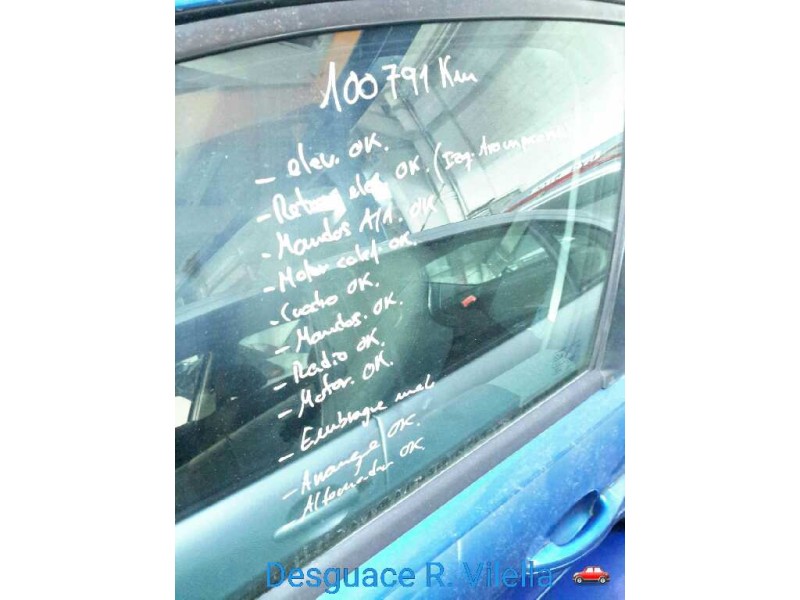 100791 Km
- elev. OK.
- Retrov. elec. OK. (Izq.
- Mandos A/A. OK
- Motor calef. OK.
- Cuadro OK.
- Mandos. OK.
- Radio OK.
- Motor. OK.
- Embrague mal
- Arranque OK.
- Alternador OK.
Desguace R. Vilella